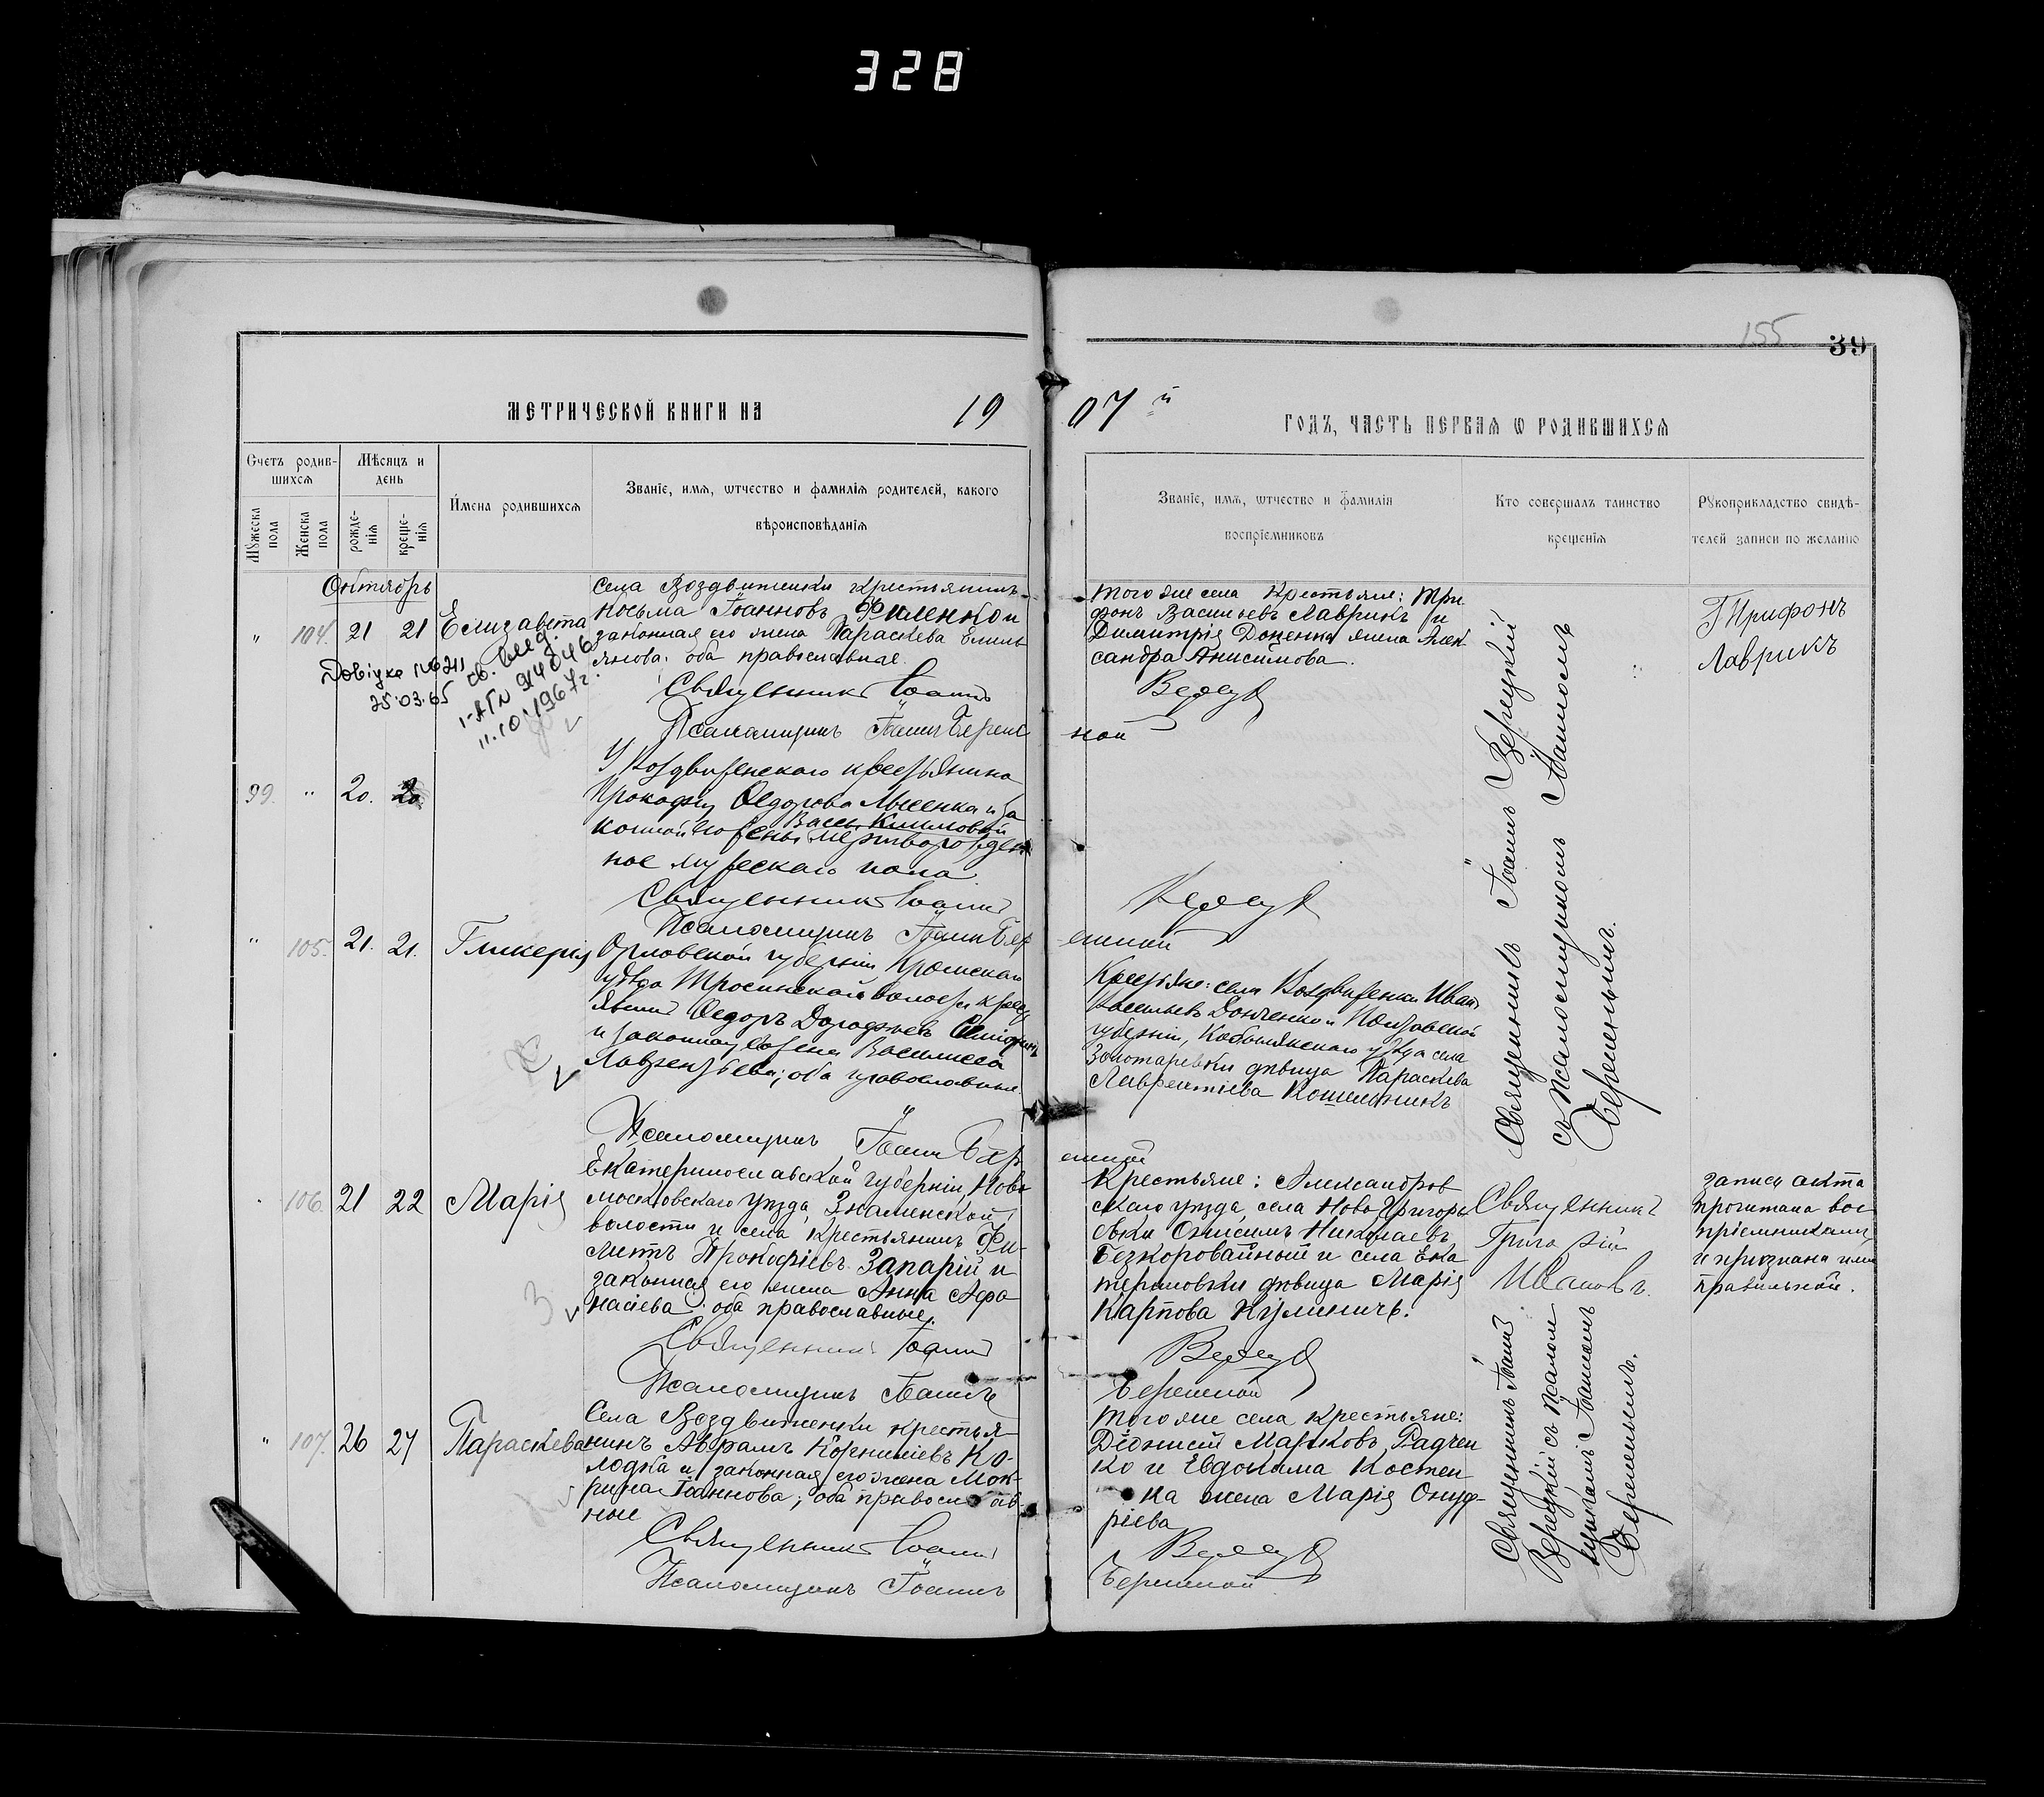 328
155
39
МЕТРИЧЕСКОЙ КНИГИ НА 19
07 й ГОДЪ, ЧАСТЬ ПЕРВАЯ Ѡ РОДИВШИХСЯ
Счетъ родив-
шихся
Мѣсяцъ и
день
Мужеска
пола
Женска
пола
рожде-
нія
креще-
нія
Имена родившихся
Званіе, имя, ѡтчество и фамилія родителей, какого
вѣроисповѣданія
Званіе, имя, ѡтчество и фамилія
воспріемниковъ
Кто совершалъ таинство
крещенія
Рукоприкладство свидѣ-
телей записи по желанію
Октябрь
" 104. 21 21 Елизавета
25.03.65
11.10.1967г.
Села Воздвиженки крестьянинъ
Косьма Іоанновъ Филенко и
законная его жена Параскева Емиль
янова; оба православные.
Священникъ Іоаннъ
Псаломщикъ Іоаннъ Береж
ной
Того же села Крестьяне: Три
фонъ Васильевъ Лаврикъ и
Димитрія Доценка жена Алек
сандра Анисимова.
Трифонъ
Лаврикъ
Священникъ Іоаннъ Верецкій
съ Псаломщикомъ Іоанномъ
Бережнымъ.
99. " 20. 20
У Воздвиженскаго крестьянина
Прокофія Ѳедорова Лысенка и за
конной его жены Васс. Климовой
мертворожден
ное мужескаго пола
Священникъ Іоаннъ
Псаломщикъ Іоаннъ Бер
ежной
" 105. 21. 21. Гликерія
Орловской губерніи, Кромскаго
уѣзда Тросинской волости крест
янинъ Ѳедоръ Дорофеевъ
и законная его жена Василисса
Лаврентьева; оба православные.
Крестьяне: села Воздвиженки Иванъ
Васильевъ Донченко и Полтавской
губерніи, Кобелякскаго уѣзда села
Золотаревки дѣвица Параскева
Лаврентіева Кошельникъ
Псаломщикъ Іоаннъ Бер
ежной
106. 21 22 Марія
Екатеринославской губерніи, Ново
московскаго уѣзда, Знаменской
волости и села, крестьянинъ Фи-
липпъ Прокофіевъ Запарій и
законная его жена Анна Афа
насіева; оба православные.
Священникъ Іоаннъ
Псаломщикъ Іоаннъ
Бережной
Крестьяне: Александров
скаго уѣзда, села Ново-Григорь
овки Онисимъ Николаевъ
Безкоровайный и села Ека
териновки дѣвица Марія
Карпова Кулиничъ.
Священникъ
Григорій
Ивановъ.
запись акта
прочитана вос
пріемниками
и признана ими
правильной.
" 107. 26 27 Параскева
Села Воздвиженки крестья-
нинъ Аврамъ Корниліевъ Ко-
лодка и законная его жена Мок-
рина Іоаннова; оба православ-
ные
Священникъ Іоаннъ
Псаломщикъ Іоаннъ
Бережной
Того же села крестьяне:
Діонисій Марковъ Радчен
ко и Евдокима Костен
ка жена Марія Онуф-
ріева
Священникъ Іоаннъ
Верецкій съ Псалом
щикомъ Іоанномъ
Бережнымъ.